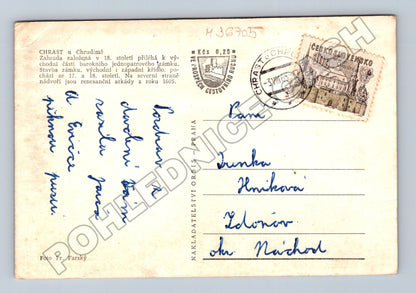 M 36705
CHRAST u Chrudimi
Zahrada založená v 18. století přiléhá k východní části barokního jednopatrového zámku.
Stavba zámku, východní i západní křídlo pochází ze 17. a 18. století. Na severní straně
nádvoří jsou renesanční arkády z roku 1605.
Kčs 0,20
VE PROSPĚCH CESTOVNÍHO RUCHU
CHRAST U CHRUD
ČESKOSLOVENSKO
Pozdrav z
dovolené Vám
zasílá Jana
A Evice
píknou pusu.
Paní
Irenka
Hniková
Zdoňov
okr. Náchod
NAKLADATELSTVÍ ORBIS - PRAHA
Foto Fr. Farský
POHLEDNICE